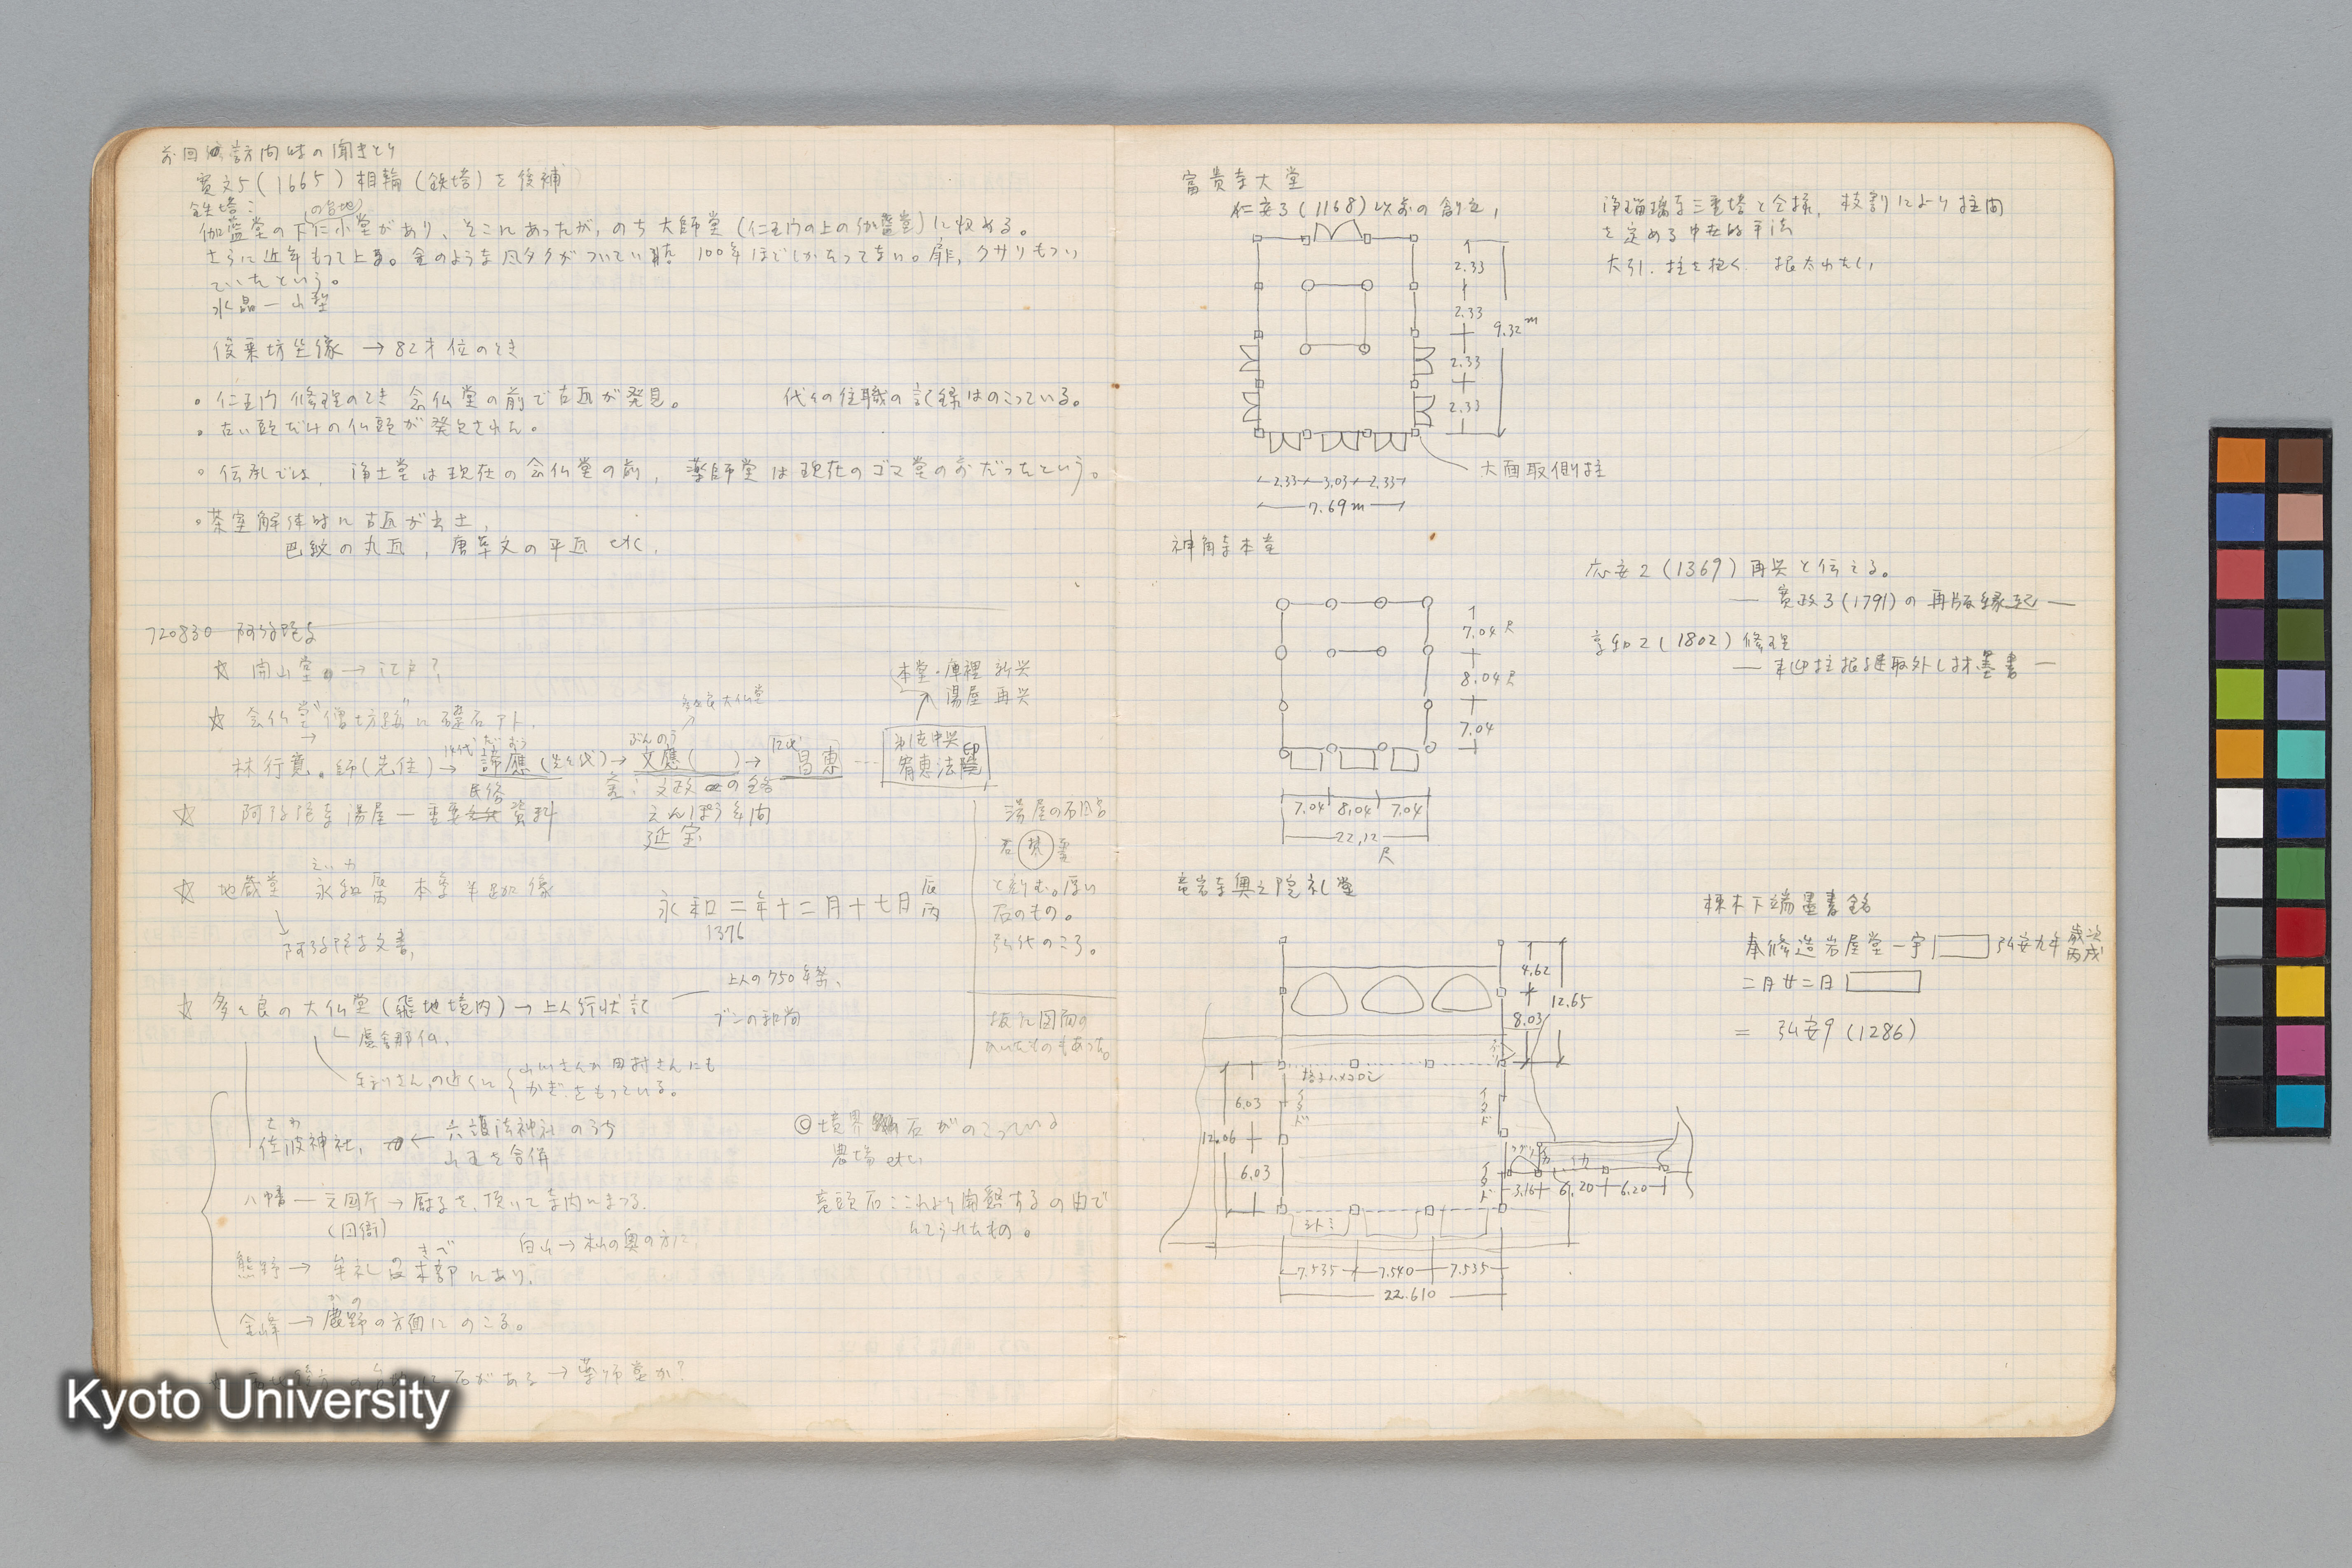 前回訪問時の聞きとり
寛文5(1665)相輪(鉄塔)を後補
鉄塔:
(の台地)
伽藍堂の下に小堂があり、そこにあったが、のち大師堂(仁王門の上の伽藍堂)に収める。
さらに近年もって上る。金のような
100年ほどしかたってない。扉、クサリもつい
ていたという。
水晶一山型
俊乗坊坐像 → 82才位のとき
。仁王門修理のとき念仏堂の前で古瓦が発見。
代々の住職の記録はのこっている。
。古い頭だけの仏頭が発見された。
。伝承では、浄土堂は現在の念仏堂の前、薬師堂は現在のゴマ堂の前だったという。
。茶室解体時に古瓦が出土,
巴紋の丸瓦, 唐草文の平瓦 etc.
720830 阿弥陀寺
☆ 開山堂 → 江戸?
☆ 念仏堂"僧坊跡"に礎石アト.
本堂・庫裡 新興
湯屋 再興
多々良大仏堂
林行寛。師(先住)→ 諦應(先々代)→ 文應( )→ 昌恵 …
14代
ぶんのう
12代
第1世中興
宥恵法印
文政の銘
☆ 阿弥陀寺湯屋 — 重要民俗資料
えんぽう年間
延宝
湯屋の石風呂
と刻む。厚い
石のもの。
弘代のころ。
えいわ
☆ 地蔵堂 永和 本尊半跏像
→ 阿弥陀寺文書,
永和二年十二月十七日 丙辰
1376
上人の750年祭、
☆ 多々良の大仏堂(飛地境内)→ 上人行状記
盧舎那仏,
ブンの和尚
板に図面の
かいたものもあった。
山川さんか田村さんにも
かぎをもっている。
さわ
佐波神社, ← 六護法神社のうち
山王を合併
◎境界石がのこっている
農場 etc.
八幡 — 元国庁 → 厨子を、頂いて寺内にまつる.
(国衙)
竜頭石:これより開墾するの由で
白山 →
きべ
熊野 → 牟礼の木部にあり.
かの
金峰 → 鹿野の方面にのこる。
石がある → 薬師堂か?
Kyoto University
富貴寺大堂
仁安3(1168)以前の創立,
浄瑠璃寺三重塔と仝様, 枝割により柱間
を定める中世的手法
大引, 柱を抱く. 根太わたし,
2.33
2.33
9.32m
2.33
2.33
大面取側柱
2.33 3.03 2.33
7.69m
神角寺本堂
応安2(1369)再興と伝える。
— 寛政3(1791)の再版縁起 —
享和2(1802)修理
— 来迎柱根継取外し材墨書 —
7.04尺
8.04尺
7.04
7.04 8.04 7.04
22.12
尺
竜岩寺奥之院礼堂
棟木下端墨書銘
奉修造岩屋堂一宇 弘安九年 歳次丙戌
二月廿二日
= 弘安9(1286)
4.62
12.65
8.03
格子ハメコロシ
6.03
12.06
6.03
イタド
イタド
イタド
シトミ
3.16 6.20 6.20
7.535 7.540 7.535
22.610